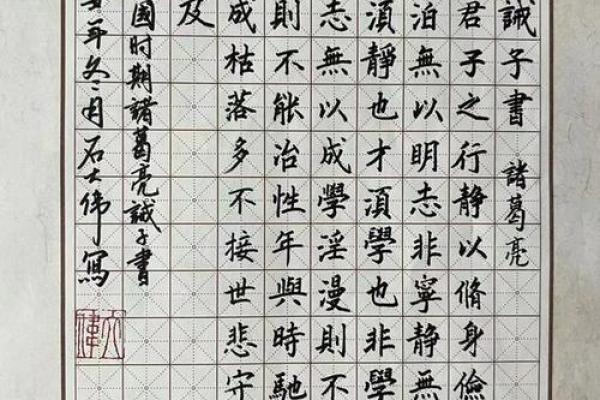 誡子書 諸葛亮
君子之行静以脩身儉
泊無以明志非寧静無
須静也才須學也非學
志無以成學淫漫則不
則不能冶性年與時馳
成枯落多不接世悲守
及
國时期諸葛亮誡子書
年冬月石大偉寫
大偉